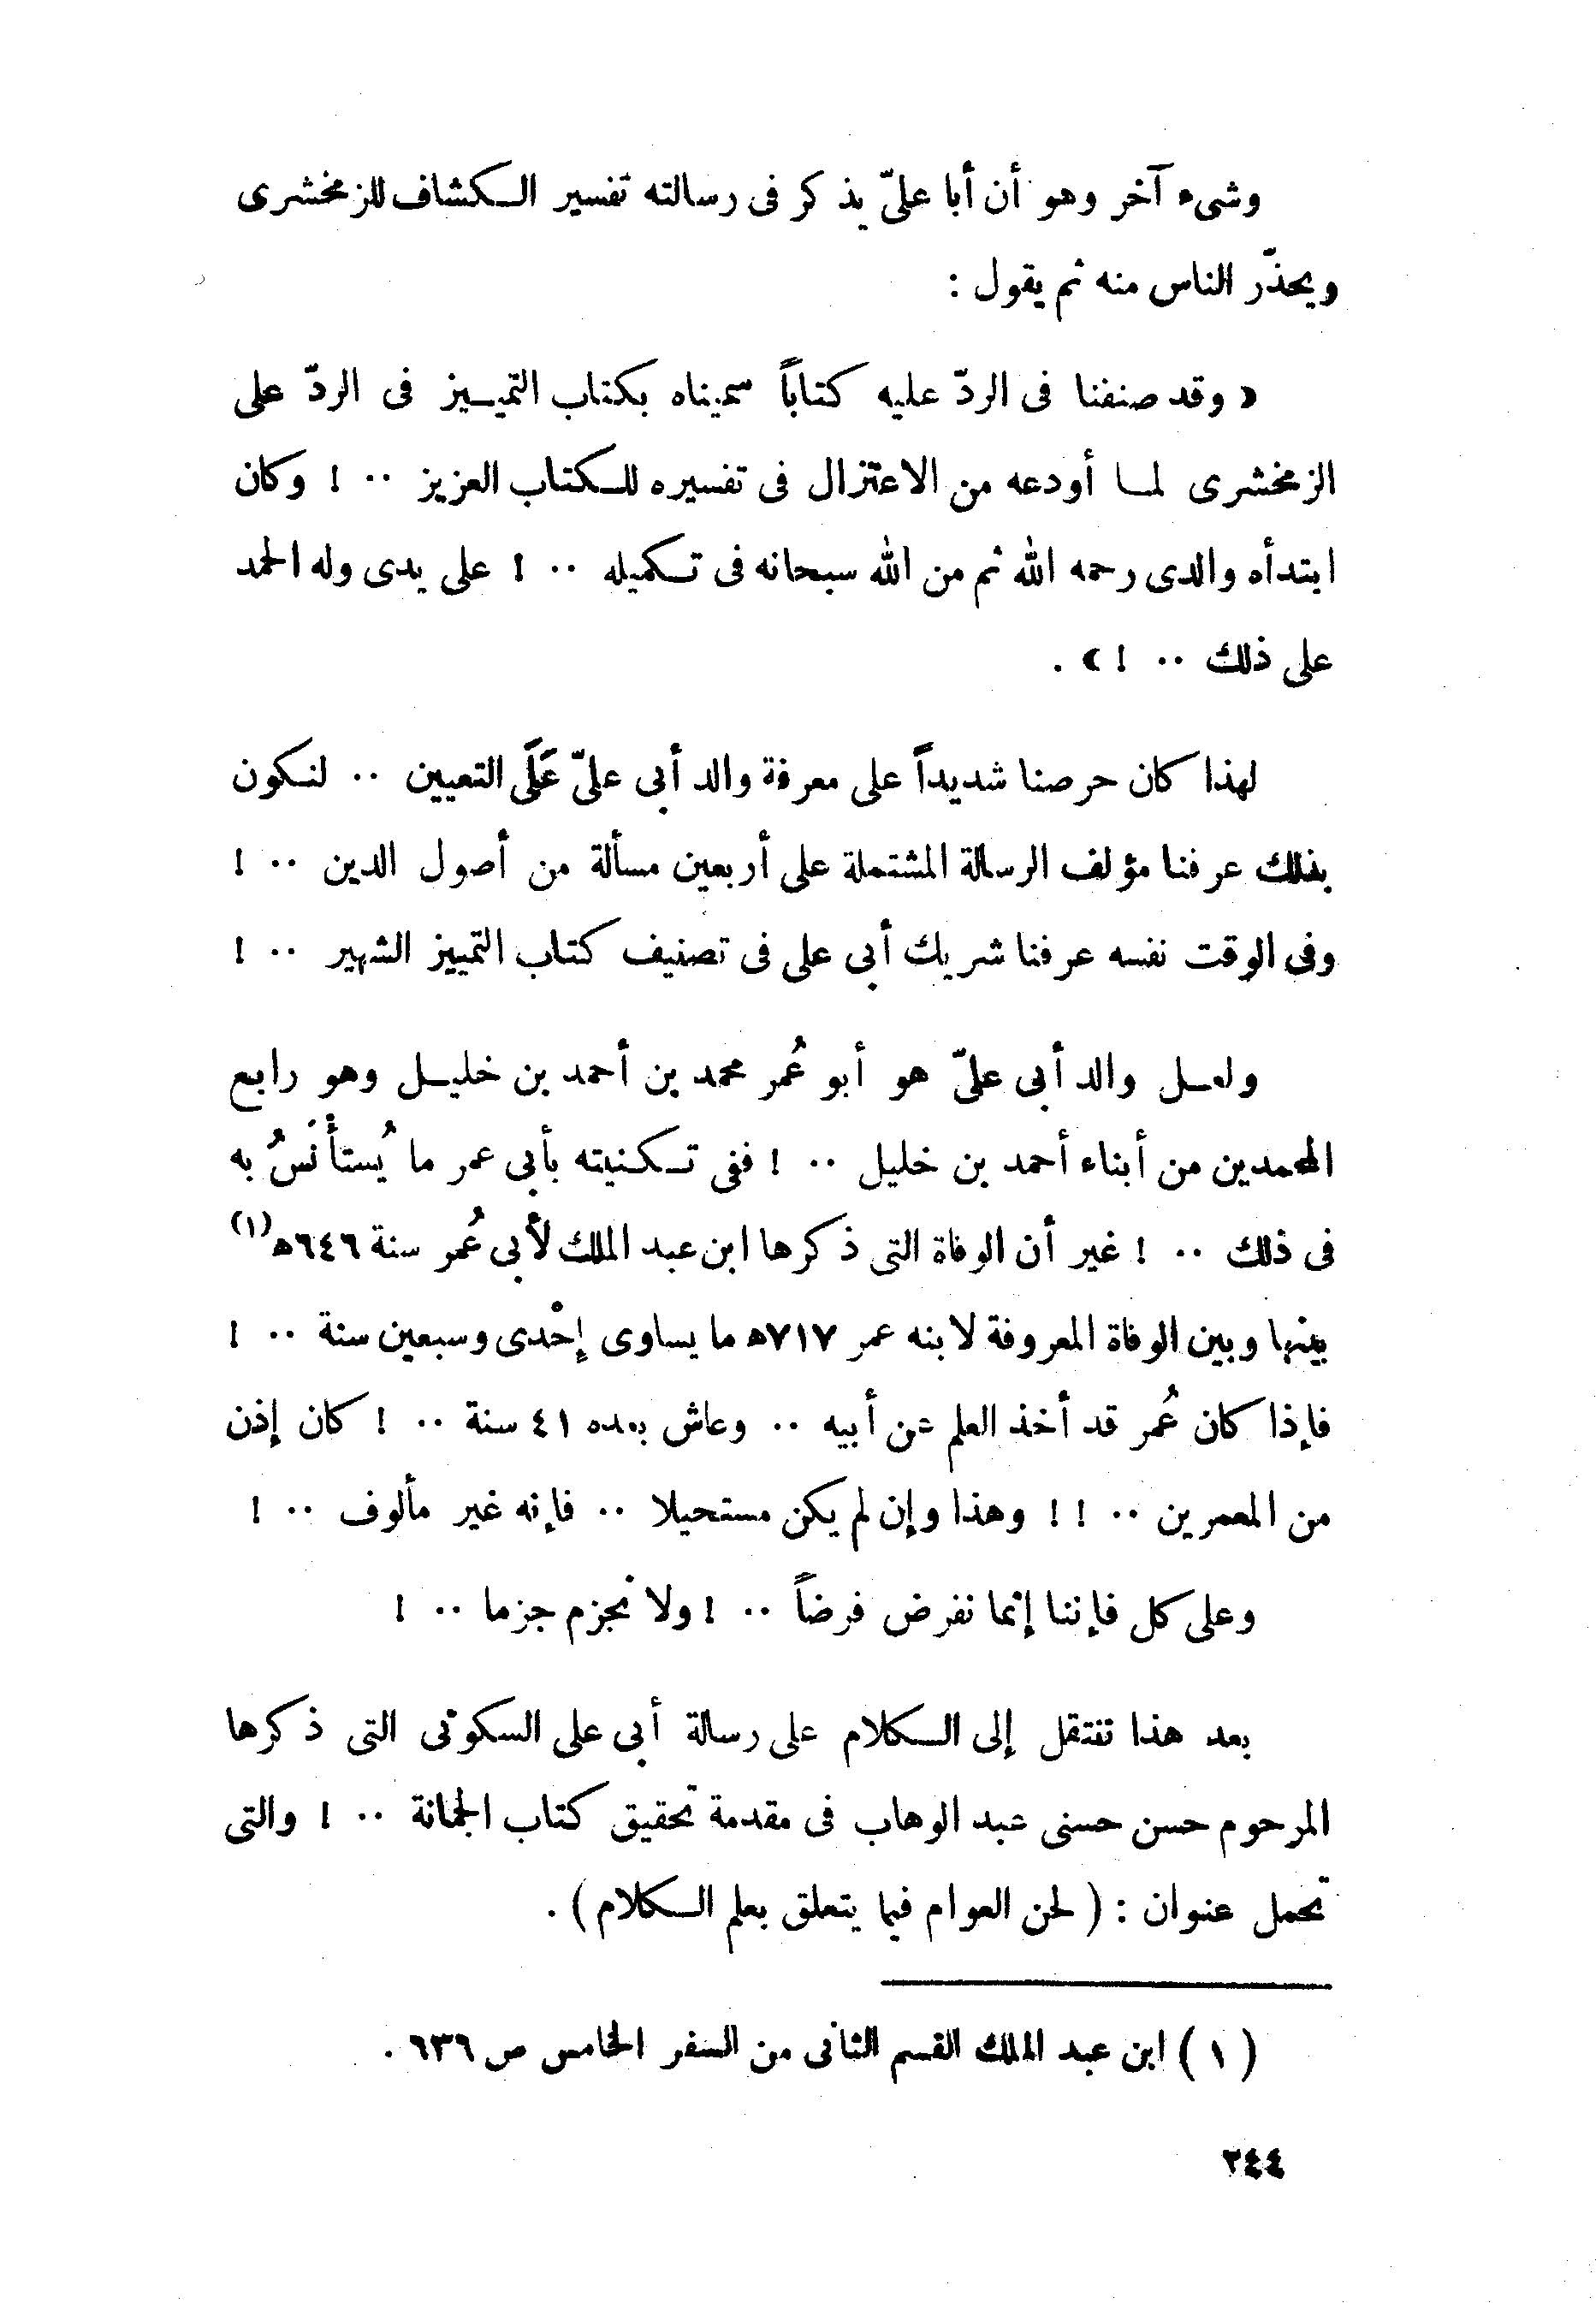 وشىء آخر وهو أن أبا علىّ يذكر فى رسالته تفسير الكشاف للزمخشرى
ويحذّر الناس منه ثم يقول :
« وقد صنفنا فى الردّ عليه كتاباً سميناه بكتاب التمييز فى الردّ على
الزمخشرى لما أودعه من الاعتزال فى تفسيره للكتاب العزيز .. ! وكان
ابتدأه والدى رحمه الله ثم من الله سبحانه فى تكميله .. ! على يدى وله الحمد
على ذلك .. ! » .
لهذا كان حرصنا شديداً على معرفة والد أبى علىّ عَلَى التعيين .. لنكون
بذلك عرفنا مؤلف الرسالة المشتملة على أربعين مسألة من أصول الدين .. !
وفى الوقت نفسه عرفنا شريك أبى على فى تصنيف كتاب التمييز الشهير .. !
ولعل والد أبى علىّ هو أبو عُمر محمد بن أحمد بن خليل وهو رابع
المحمدين من أبناء أحمد بن خليل .. ! ففى تكنيته بأبى عمر ما يُستأْنَسُ به
فى ذلك .. ! غير أن الوفاة التى ذكرها ابن عبد الملك لأبى عُمر سنة ٦٤٦هـ (١)
بينها وبين الوفاة المعروفة لابنه عمر ٧١٧هـ ما يساوى إحْدى وسبعين سنة .. !
فإذا كان عُمر قد أخذ العلم عن أبيه .. وعاش بعده ٤١ سنة .. ! كان إذن
من المعمرين .. ! ! وهذا وإن لم يكن مستحيلا .. فإنه غير مألوف .. !
وعلى كل فإننا إنما نفرض فرضاً .. ! ولا نجزم جزما .. !
بعد هذا ننتقل إلى الكلام على رسالة أبى على السكونى التى ذكرها
المرحوم حسن حسنى عبد الوهاب فى مقدمة تحقيق كتاب الجمانة .. ! والتى
تحمل عنوان : ( لحن العوام فيما يتعلق بعلم الكلام ) .
( ١ ) ابن عبد الملك القسم الثانى من السفر الخامس ص ٦٣٦ .
٢٤٤